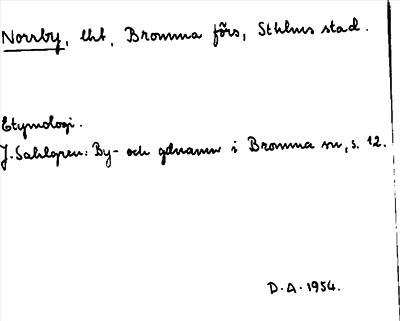 Norrby, lht, Bromma förs, Sthlms stad.
Etymologi.
J. Sahlgren: By- och gdnamn i Bromma sn, s. 12.
D.A. 1954.